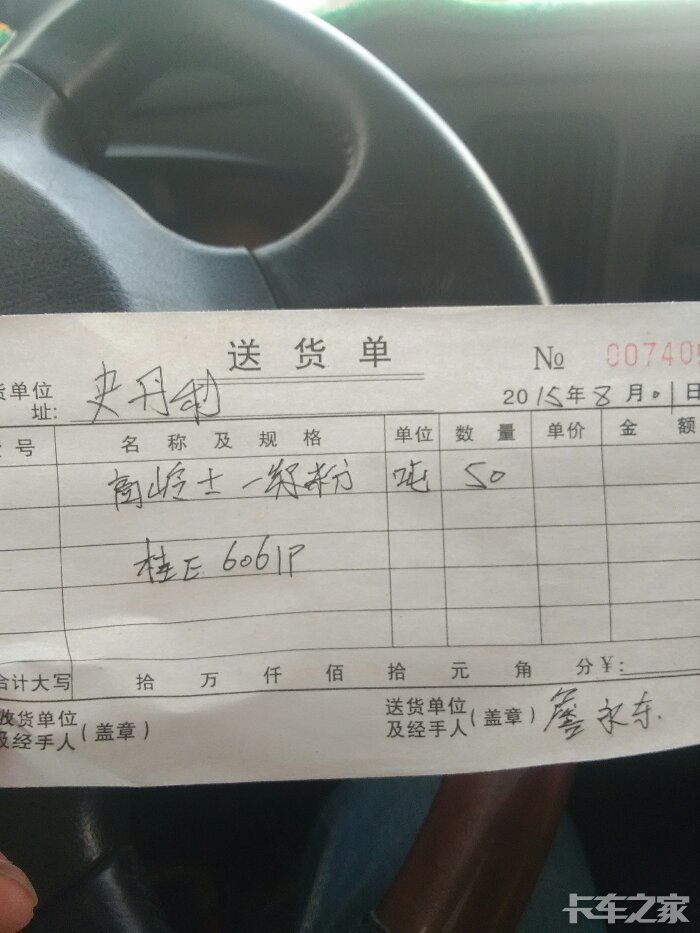 送货单
№ 00740
货单位
址: 史丹利
2015年8月01日
号 名称及规格 单位 数量 单价 金额
高岭土一级粉 吨 50
桂E 6061P
合计大写 拾 万 仟 佰 拾 元 角 分 ¥:
收货单位
及经手人 (盖章)
送货单位
及经手人 (盖章) 詹永东
卡车之家